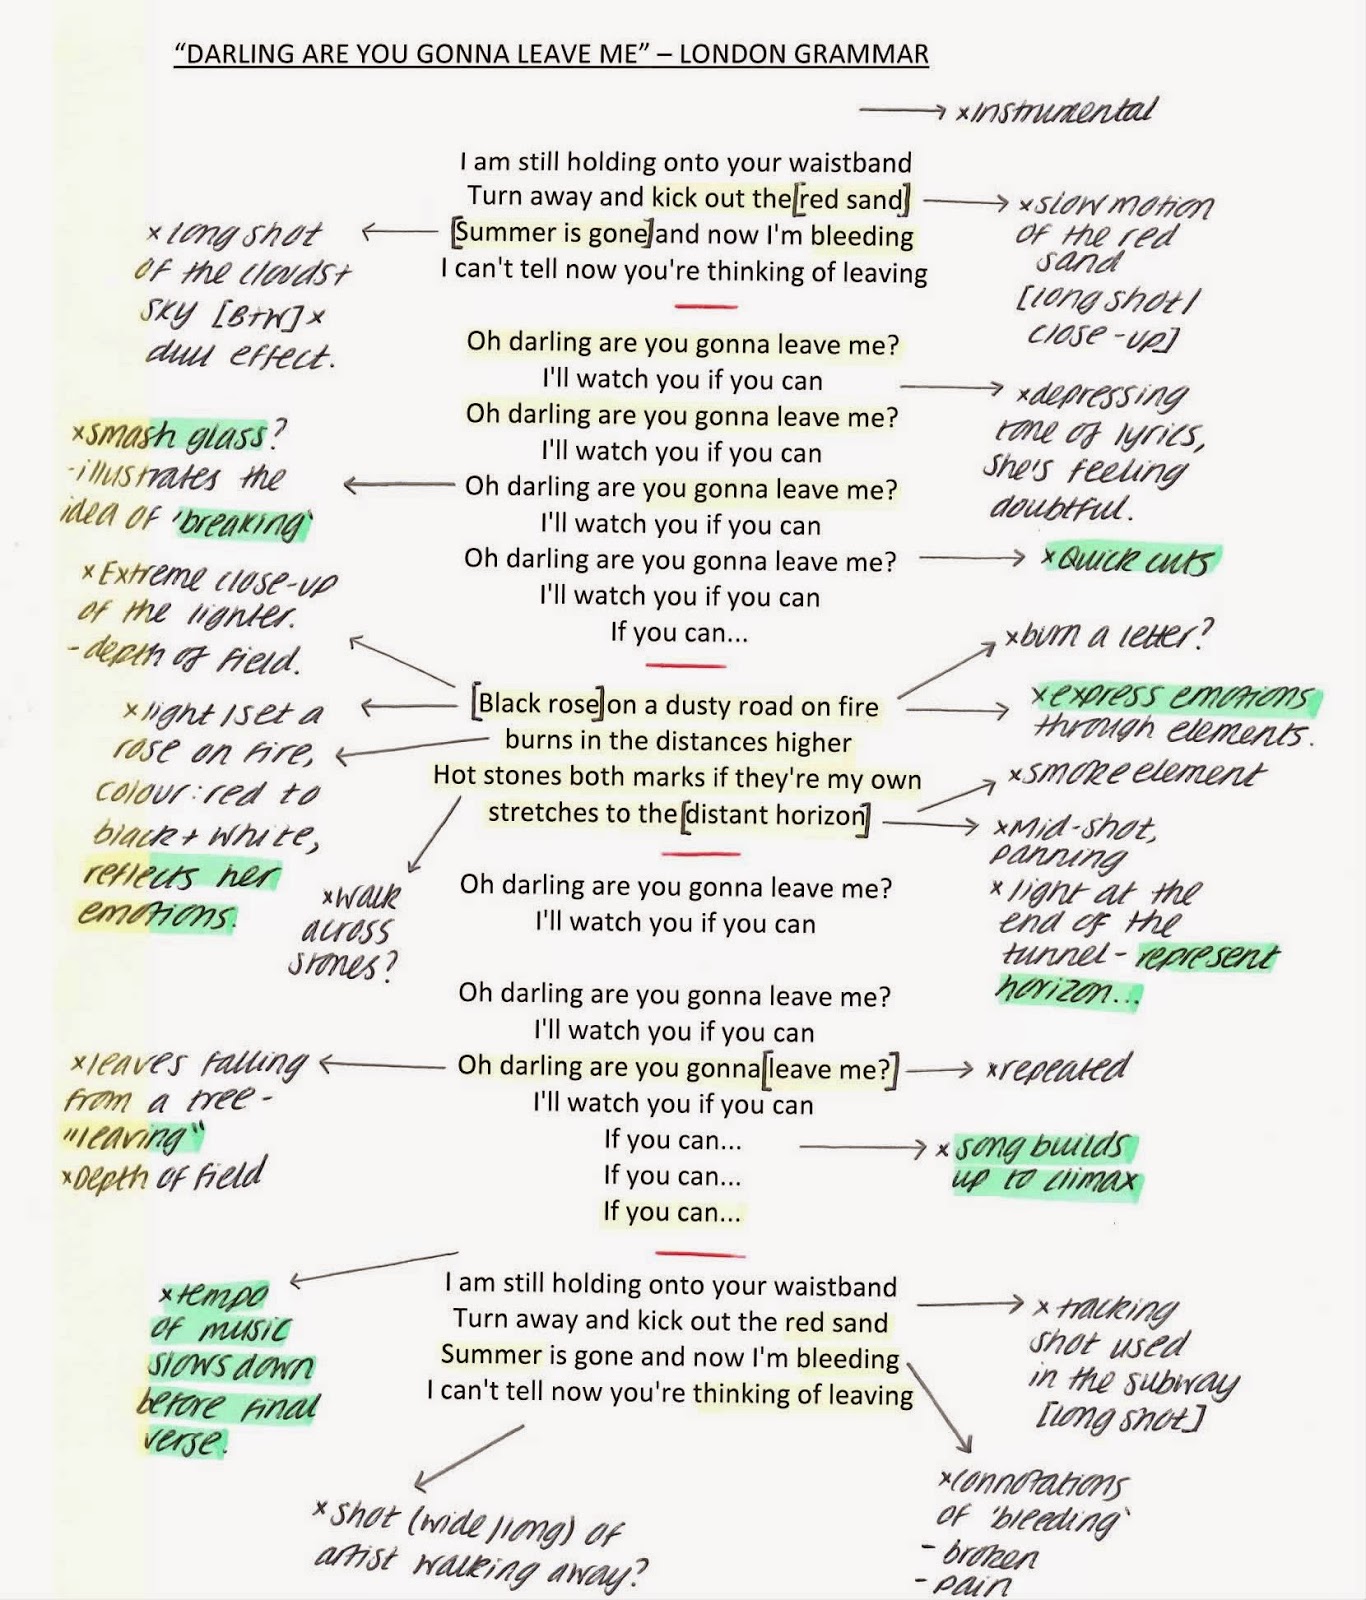 "DARLING ARE YOU GONNA LEAVE ME" – LONDON GRAMMAR
xinstrumental
I am still holding onto your waistband
Turn away and kick out the [red sand]
[Summer is gone] and now I'm bleeding
I can't tell now you're thinking of leaving
x long shot
of the clouds +
sky [B+W] x
dull effect.
xslow motion
of the red
sand
[long shot /
close-up]
Oh darling are you gonna leave me?
I'll watch you if you can
Oh darling are you gonna leave me?
I'll watch you if you can
Oh darling are you gonna leave me?
I'll watch you if you can
Oh darling are you gonna leave me?
I'll watch you if you can
If you can...
xdepressing
tone of lyrics,
she's feeling
doubtful.
xsmash glass?
-illustrates the
idea of 'breaking'
xQuick cuts
xExtreme close-up
of the lighter.
-depth of field.
xburn a letter?
[Black rose] on a dusty road on fire
burns in the distances higher
Hot stones both marks if they're my own
stretches to the [distant horizon]
xlight/set a
rose on fire,
colour: red to
black + white,
reflects her
emotions.
xexpress emotions
through elements.
xsmoke element
xMid-shot,
panning
xlight at the
end of the
tunnel - represent
horizon...
xwalk
across
stones?
Oh darling are you gonna leave me?
I'll watch you if you can
Oh darling are you gonna leave me?
I'll watch you if you can
Oh darling are you gonna [leave me?]
I'll watch you if you can
If you can...
If you can...
If you can...
xleaves falling
from a tree -
"leaving"
xDepth of field
xrepeated
x song builds
up to climax
xtempo
of music
slows down
before final
verse.
I am still holding onto your waistband
Turn away and kick out the red sand
Summer is gone and now I'm bleeding
I can't tell now you're thinking of leaving
x tracking
shot used
in the subway
[long shot]
xconnotations
of 'bleeding'
- broken
- pain
xShot (wide/long) of
artist walking away?